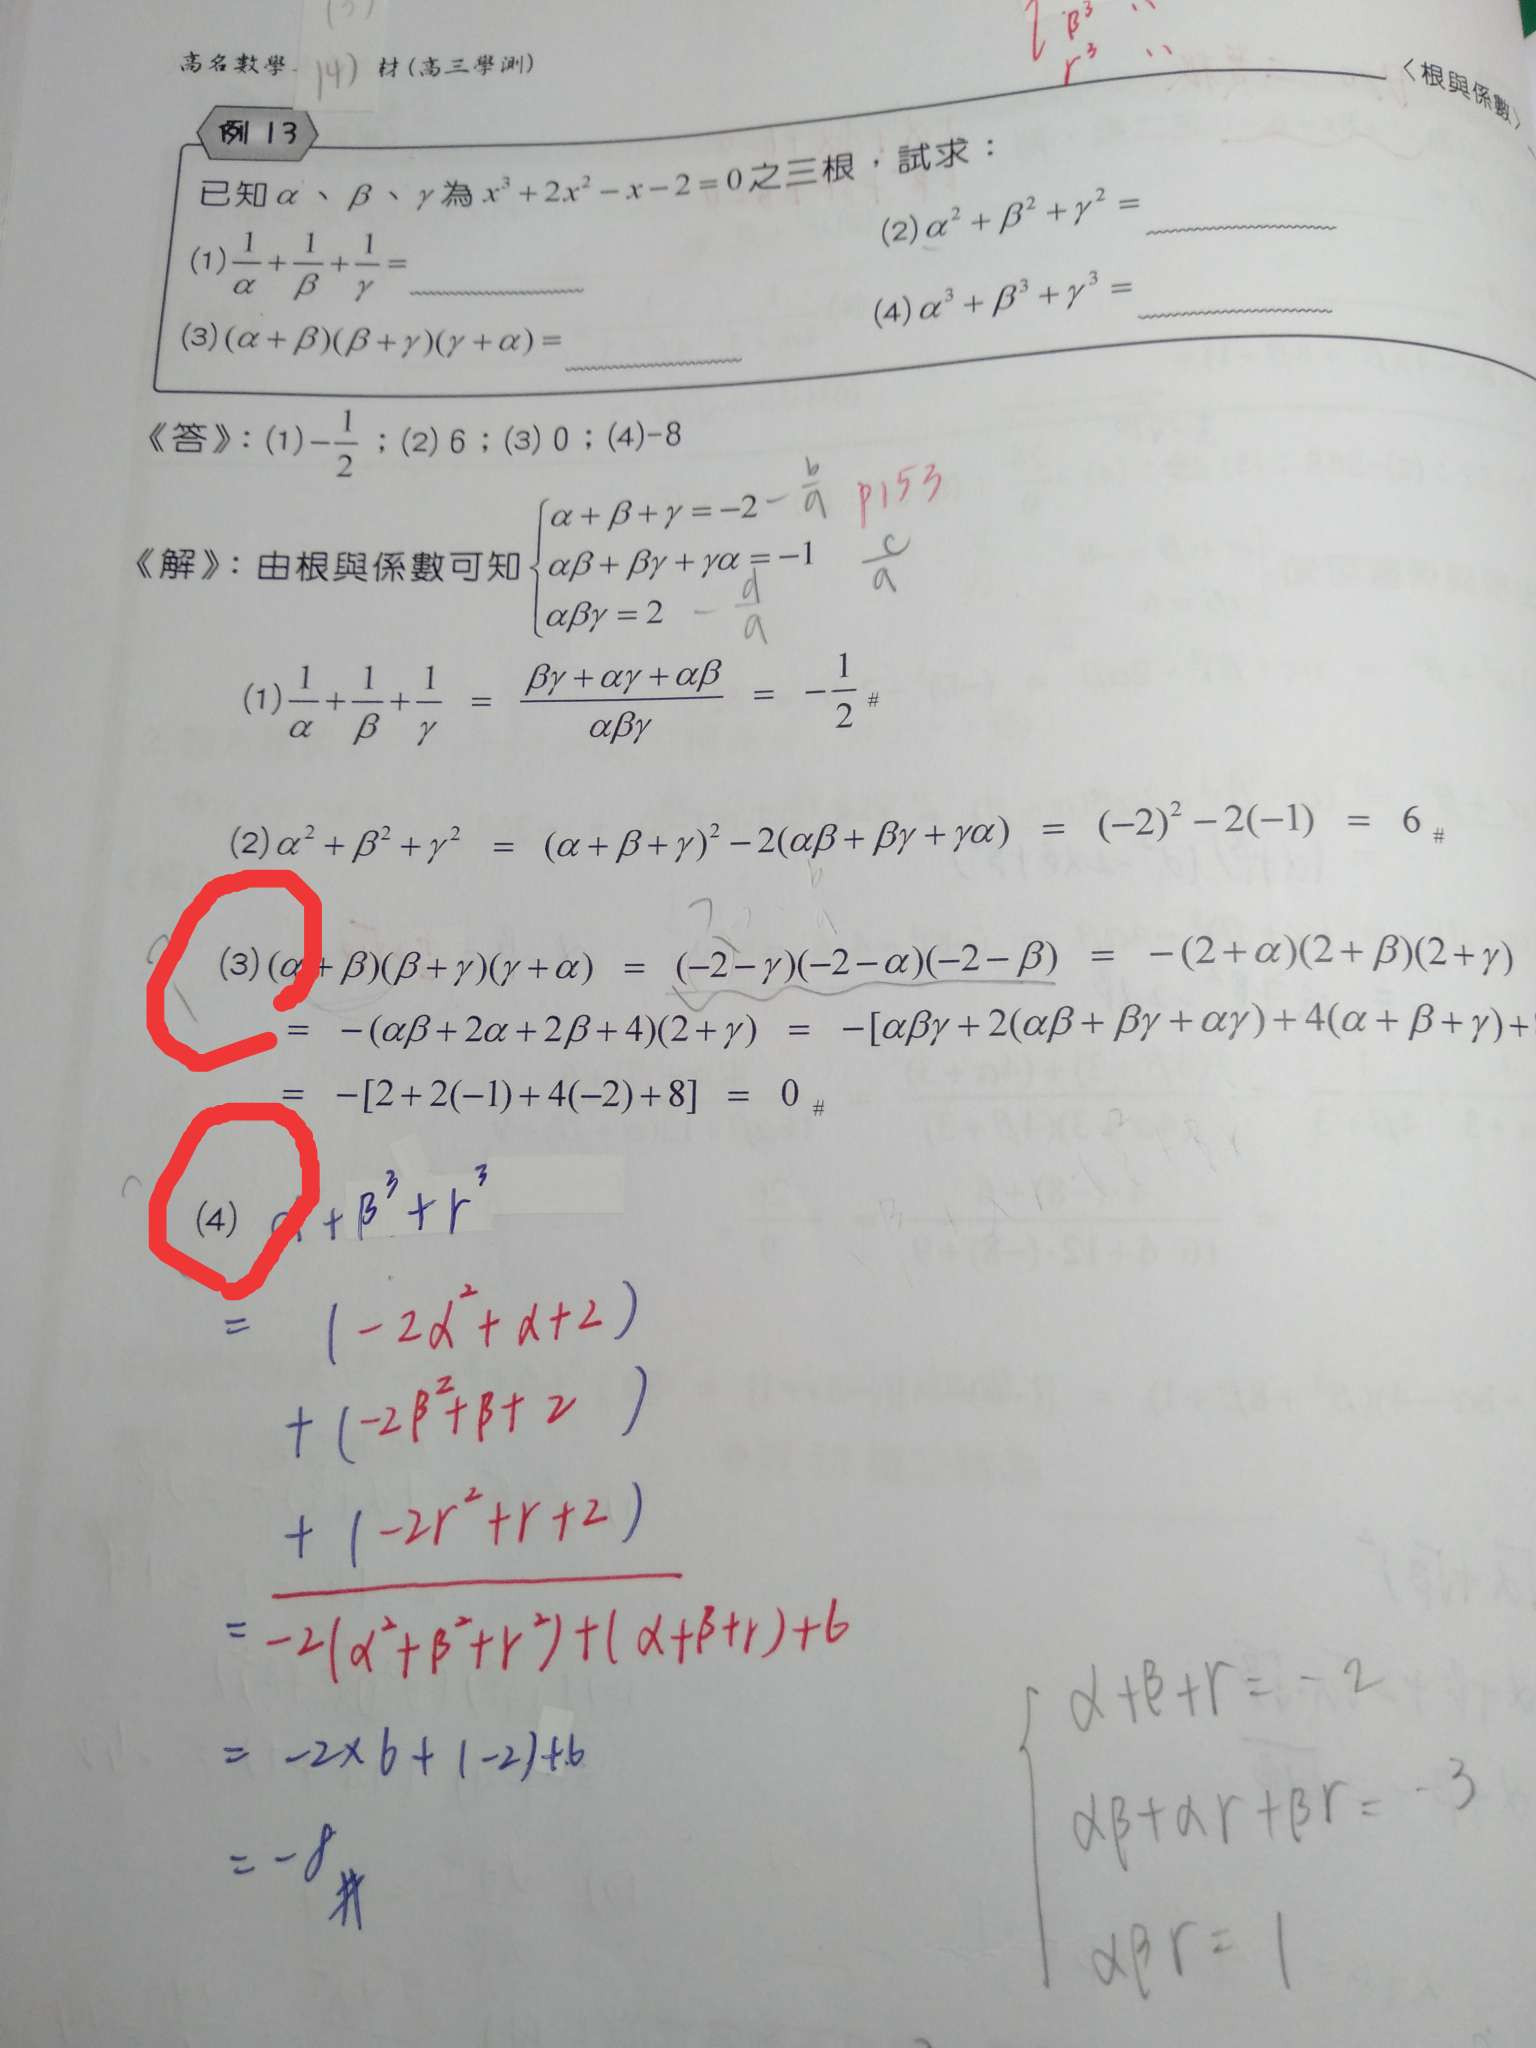 (2)
β³ ..
r³ ..
高名數學 (4) 材(高三學測)
〈根與係數〉
例 13
已知 α、β、γ 為 x³+2x²−x−2=0 之三根，試求：
(1) 1/α + 1/β + 1/γ = (2) α²+β²+γ² =
(3) (α+β)(β+γ)(γ+α)= (4) α³+β³+γ³ =
《答》：(1)−1/2；(2) 6；(3) 0；(4)-8
α+β+γ=−2 − b/a p153
《解》：由根與係數可知 αβ+βγ+γα=−1 c/a
αβγ=2 − d/a
(1) 1/α + 1/β + 1/γ = (βγ+αγ+αβ)/(αβγ) = −1/2 #
(2) α²+β²+γ² = (α+β+γ)²−2(αβ+βγ+γα) = (−2)²−2(−1) = 6 #
(3) (α+β)(β+γ)(γ+α) = (−2−γ)(−2−α)(−2−β) = −(2+α)(2+β)(2+γ)
= −(αβ+2α+2β+4)(2+γ) = −[αβγ+2(αβ+βγ+αγ)+4(α+β+γ)+
= −[2+2(−1)+4(−2)+8] = 0 #
(4) α+β³+r³
= (-2α²+α+2)
+(-2β²+β+2)
+(-2r²+r+2)
= -2(α²+β²+r²)+(α+β+r)+6
= -2×6+(-2)+6
= -8 #
α+β+r=-2
αβ+αr+βr=-3
αβr=1